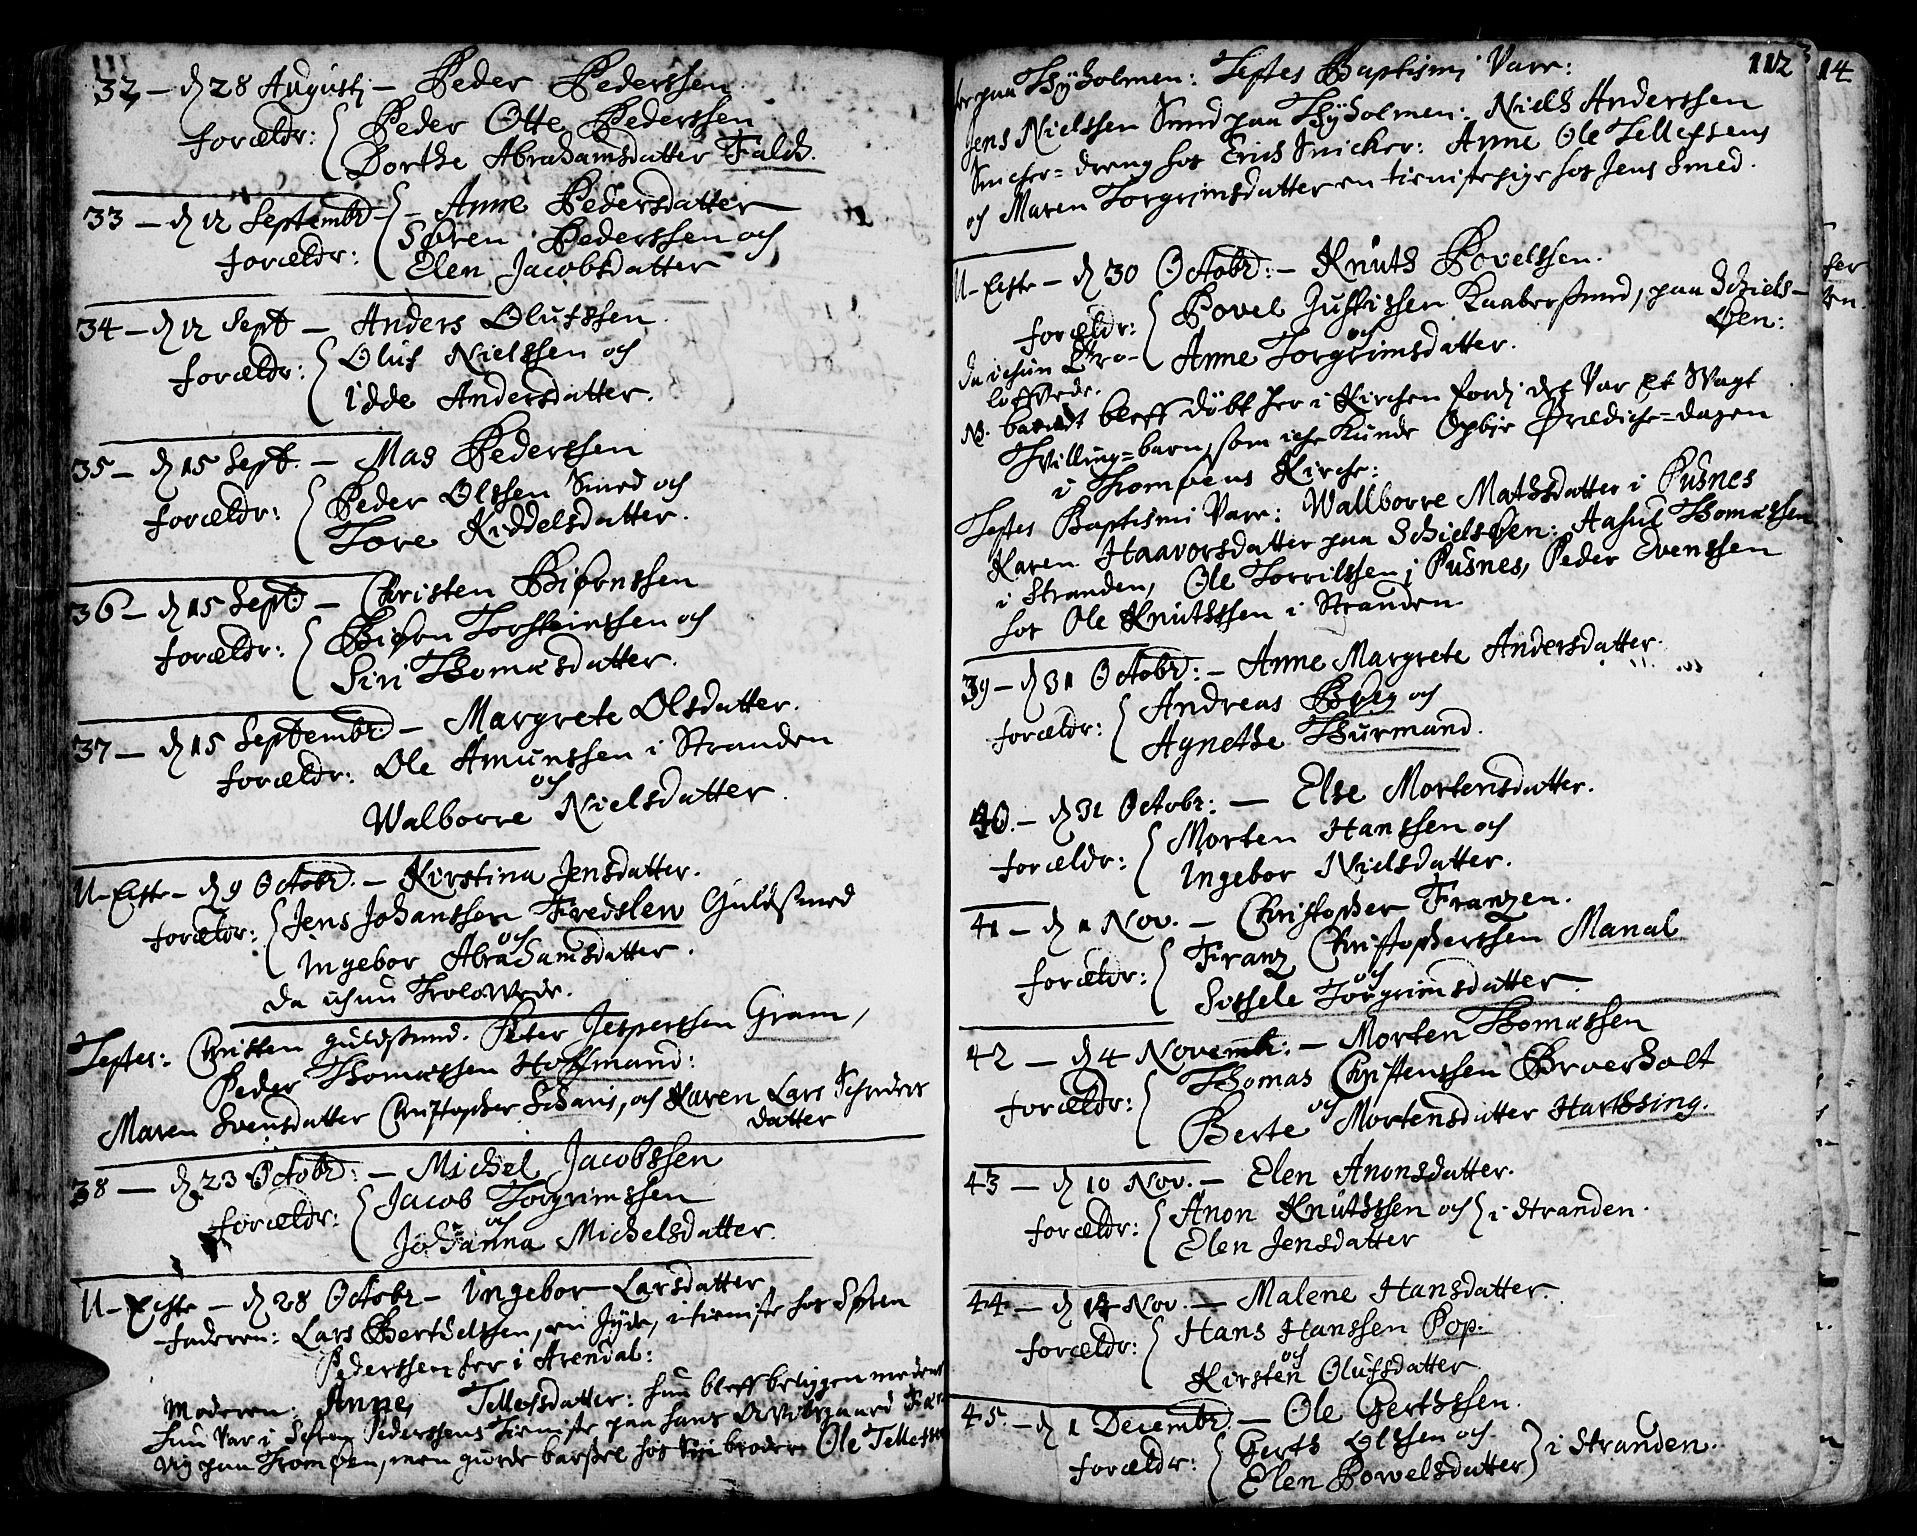 111
32, – d. 28 Augusti – Peder Pederssen
forældr: Peder Otte Pederssen
Dorthe Abrahamsdatter Falch.
33 – d. 12 Septembr – Anne Pedersdatter
Søren Pederssen och
forældr: Elen Jacobsdatter
34 – d. 12 Sept – Anders Olufssen.
forældr: Oluf Nielssen och
Idde Andersdatter.
35 – d. 15 Sept. – Mas Pederssen
forældr: Peder Olssen Smed och
Tore Kiddelsdatter.
36 – d. 15 Sept – Christen Biørnssen
forældr: Biørn Torsteinssen och
Siri Thomæsdatter.
37 – d. 15 Septembr – Margrete Olsdatter.
forældr: Ole Amunssen i Stranden
och
Walborre Nielsdatter.
U-Echte – d. 9 Octobr. – Kirstina Jensdatter.
forældr: Jens Johanssen Fredslew Guldsmed
och
Ingebor Abrahamsdatter.
da ichun Trolowede.
Testes: Christen guldsmed. Peter Jesperssen Gram,
Peder Thomæssen Hoffmand:
Maren Svensdatter Christopher Scharis, och Karen Lars Schreders
datter
38 – d. 23 Octobr: – Michel Jacobssen
forældr: Jacob Torgrimssen
och
Johanna Michelsdatter.
U-Echte – d. 28 Octobr – Ingebor Larsdatter
faderen: Lars Bertelssen, en Jyde, i tieniste hos Søren
Pederssen her i Arendal:
Moderen: Anne Tellefsdatter: hun bleff beliggen medens
hun var i Søren Pederssens Tieniste paa hans Awelsgaard
vig paa Tromøen, men giorde barsel hos sin broder Ole Tellefssen
112
her paa Thyholmen: Testes Baptismi Varr:
Jens Nielssen Smed paa Thyholmen: Niels Anderssen
Snicker-dreng hos Erich Snicker: Anne Ole Tellefsens
och Maren Torgrimsdatter en tienistepige hos Jens Smed.
U-Echte – d. 30 Octobr: – Knuth Povelssen.
forældr: Povel Justissen Kaabersmed, paa Schiels-
och øen:
da ichun Tro- Anne Torgrimsdatter.
loffvede.
NB. barnet bleff døbt her i Kirchen fordj det Var et Svagt
Tvilling-barn, som iche Kunde Opbie Prædiche-dagen
i Tromøens Kirche:
Testes Baptismi Varr: Wallborre Mathsdatter i Pusnes
Karen Haavorsdatter paa Schielsøen: Aasul Thomæssen
i Stranden, Ole Torrilssen i Pusnes, Peder Evenssen
hos Ole Knuthssen i Stranden
39 – d. 31 Octobr: – Anne Margrete Andersdatter.
forældr: Andreas Bøeg och
Agnethe Thurmand.
40. – d. 31 Octobr: – Else Mortensdatter.
forældr: Morten Hanssen och
Ingebor Nielsdatter.
41 – d. 1 Nov. – Christopher Franzen.
forældr: Franz Christopherssen Manal
och
Sissele Torgrimsdatter.
42 – d. 4 Novemb: – Morten Thomæssen
forældr: Thomas Christenssen Broerholt
och
Berte Mortensdatter Harthsing.
43 – d. 10 Nov. – Elen Anonsdatter.
forældr: Anon Knuthssen och i Stranden.
Elen Jensdatter
44 – d. 14 Nov. – Malene Hansdatter.
forældr: Hans Hanssen Pop.
och
Kirsten Olufsdatter
45. – d. 1 Decembr. – Ole Gerthssen.
forældr: Gerth Olssen och i Stranden.
Elen Powelsdatter
14